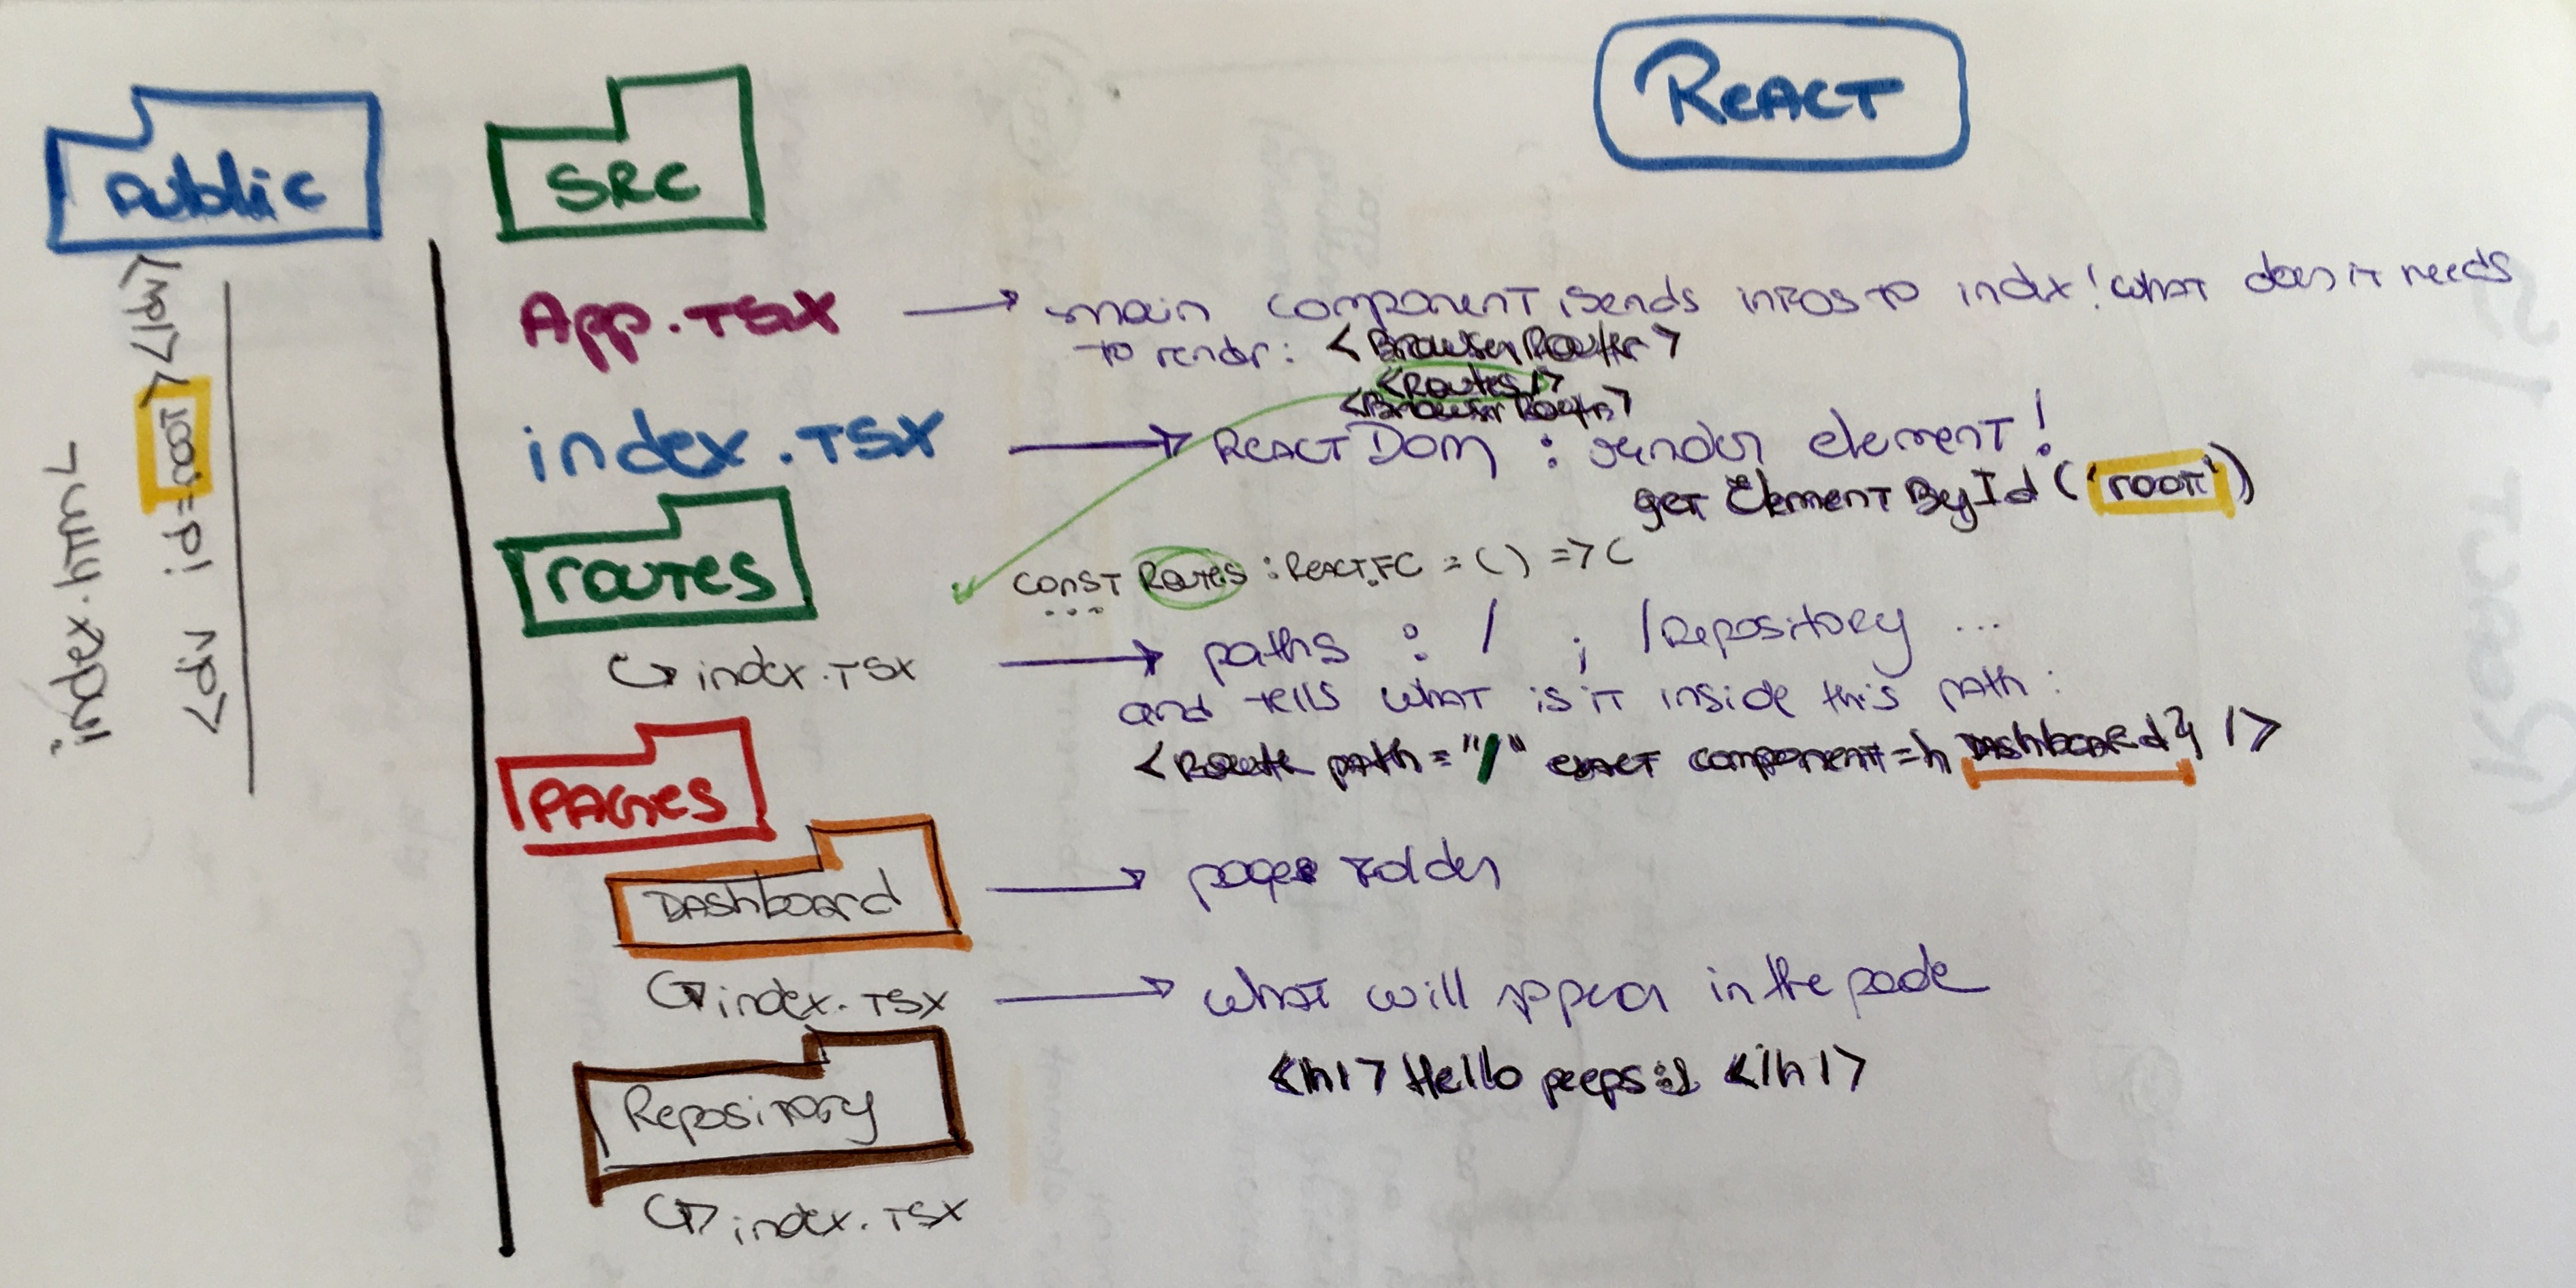 REACT
public
SRC
index.HTML
<div id=root></div>
App.TSX
main component, sends infos to index! what does it needs
to render: <BrowserRouter>
<Routes/>
<BrowserRouter>
index.TSX
REACT DOM : render element!
get Element By Id ('root')
routes
const Routes : React.FC = () => (
...
index.TSX
paths : / ; /Repository ...
and tells what is it inside this path :
<Route path = "/" exact component={Dashboard} />
PAGES
Dashboard
page folder
index.TSX
what will appear in the
<h1> Hello peeps :) </h1>
Repository
index.TSX